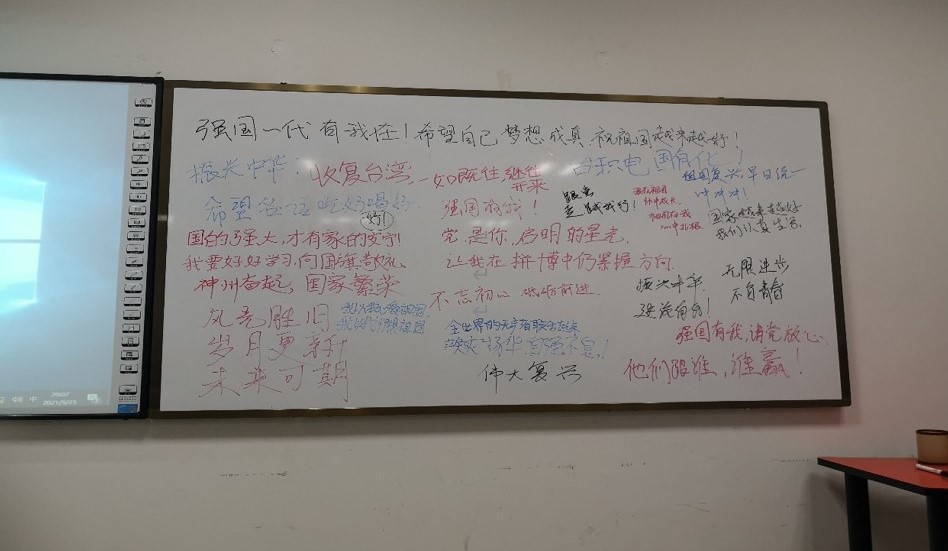 强国一代有我在！希望自己梦想成真，祝祖国越来越好！
振兴中华，收复台湾，一如既往继往
开来
台积电国有化！
祖国复兴早日统一
冲冲冲！
希望
吃好喝好
强国有我！
国的强大，才有家的安宁！
党，是你，启明的星光，
国家越来越好
我们认真生活
我要好好学习，向国旗敬礼。
让我在拼搏中仍掌握方向
神州奋起，国家繁荣
不忘初心 砥砺前进
振兴中华
无限进步
不负青春
风竞胜旧
岁月更新
未来可期
全世界的无产者联合起来
自强不息！
强国有我，请党放心。
伟大复兴
他们跟谁，谁赢！
2021/9/25